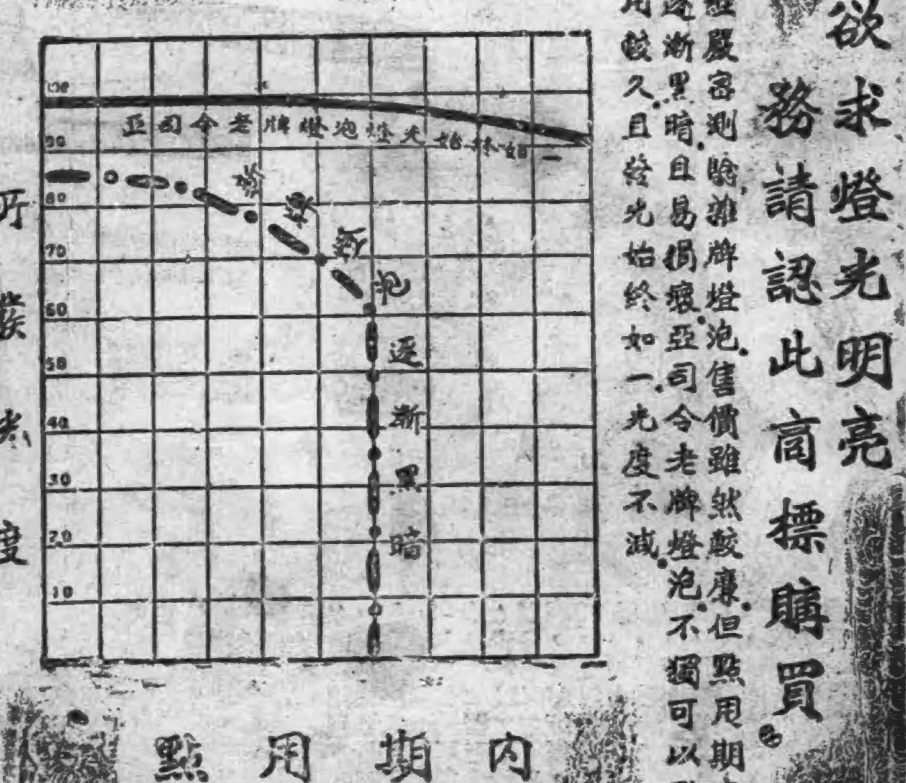 欲求燈光明亮
務請認此商標購買。
嚴密測驗雜牌燈泡售價雖然較廉但點用期
逐漸黑暗且易損壞亞司令老牌燈泡不獨可以
用較久且發光始終如一光度不減
100
90
80
70
60
50
40
30
20
10
亞司令老牌燈泡燈光始終如一
雜牌燈泡逐漸黑暗
所發光度
點用期內